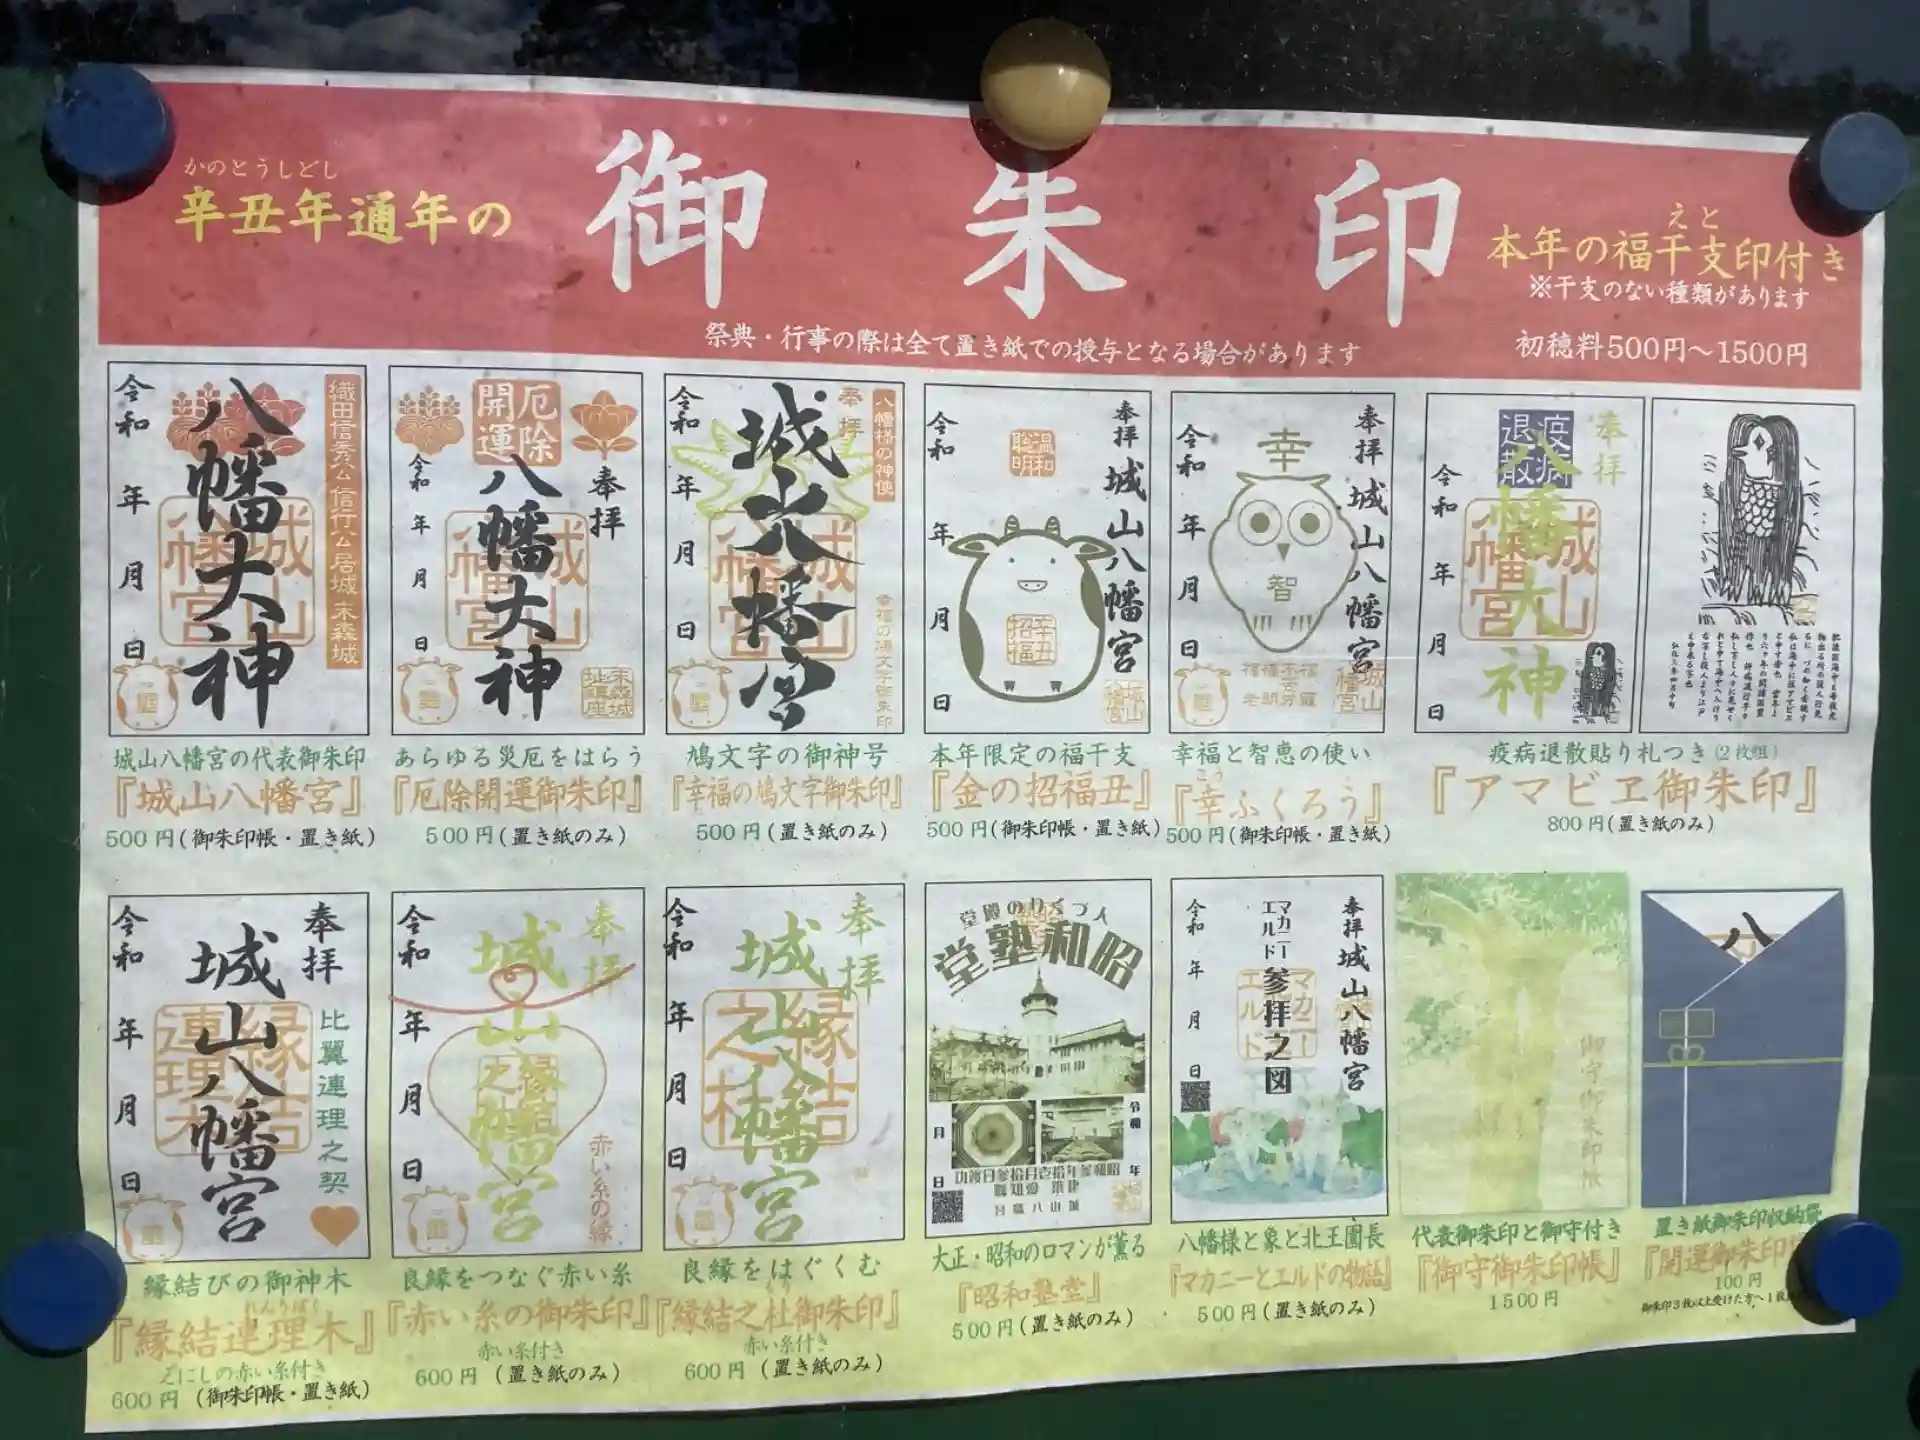 かのとうしどし
辛丑年通年の
御朱印
えと
本年の福干支印付き
※干支のない種類があります
祭典・行事の際は全て置き紙での授与となる場合があります
初穂料500円〜1500円
令和 年 月 日
八幡大神
城山八幡宮
織田信秀公 信行公 居城 末森城
城山八幡宮の代表御朱印
『城山八幡宮』
500円(御朱印帳・置き紙)
厄除開運
奉拝
八幡大神
城山八幡宮
令和 年 月 日
末森城址鎮座
あらゆる災厄をはらう
『厄除開運御朱印』
500円(置き紙のみ)
八幡様の神使
奉拝
城山八幡宮
城山八幡宮
令和 年 月 日
幸福の鳩文字御朱印
鳩文字の御神号
『幸福の鳩文字御朱印』
500円(置き紙のみ)
奉拝 城山八幡宮
温和聡明
辛丑招福
令和 年 月 日
城山八幡宮
本年限定の福干支
『金の招福丑』
500円(御朱印帳・置き紙)
奉拝 城山八幡宮
幸
智
令和 年 月 日
城山八幡宮
幸福と智恵の使い
こう
『幸ふくろう』
500円(御朱印帳・置き紙)
奉拝
疫病退散
八幡大神
城山八幡宮
令和 年 月 日
疫病退散貼り札つき(2枚組)
『アマビヱ御朱印』
800円(置き紙のみ)
奉拝
城山八幡宮
縁結連理木
比翼連理之契
令和 年 月 日
縁結びの御神木
れんりぼく
『縁結連理木』
えにしの赤い糸付き
600円 (御朱印帳・置き紙)
奉拝
城山八幡宮
赤い糸の縁
令和 年 月 日
良縁をつなぐ赤い糸
『赤い糸の御朱印』
赤い糸付き
600円 (置き紙のみ)
奉拝
城山八幡宮
縁結之杜
令和 年 月 日
良縁をはぐくむ
もり
『縁結之杜御朱印』
赤い糸付き
600円 (置き紙のみ)
人づくりの殿堂
昭和塾堂
令和 年 月 日
昭和参年拾壱月拾参日竣功
建築 愛知縣
城山八幡宮
大正・昭和のロマンが薫る
『昭和塾堂』
500円(置き紙のみ)
奉拝 城山八幡宮
マカニー エルド 参拝之図
マカニーエルド
令和 年 月 日
八幡様と象と北王園長
『マカニーとエルドの物語』
500円(置き紙のみ)
御守御朱印帳
代表御朱印と御守付き
『御守御朱印帳』
1500円
八
置き紙御朱印収納袋
『開運御朱印
100円
御朱印3枚以上受けた方へ1枚